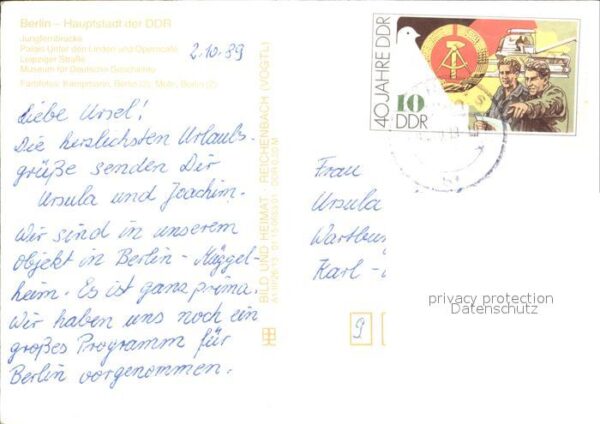 Berlin – Hauptstadt der DDR
Jungfernbrücke
Palais Unter den Linden und Operncafé
Leipziger Straße
Museum für Deutsche Geschichte
Farbfotos: Kampmann, Berlin (2), Mohr, Berlin (2)
2.10.89
Liebe Ursel!
Die herzlichsten Urlaubs-
grüße senden Dir
Ursula und Joachim.
Wir sind in unserem
Objekt in Berlin - Müggel-
heim. Es ist ganz prima.
Wir haben uns noch ein
großes Programm für
Berlin vorgenommen.
BILD UND HEIMAT · REICHENBACH (VOGTL)
40 JAHRE DDR
10
DDR
Frau
Ursula
Wartbur
Karl -
privacy protection
Datenschutz
9